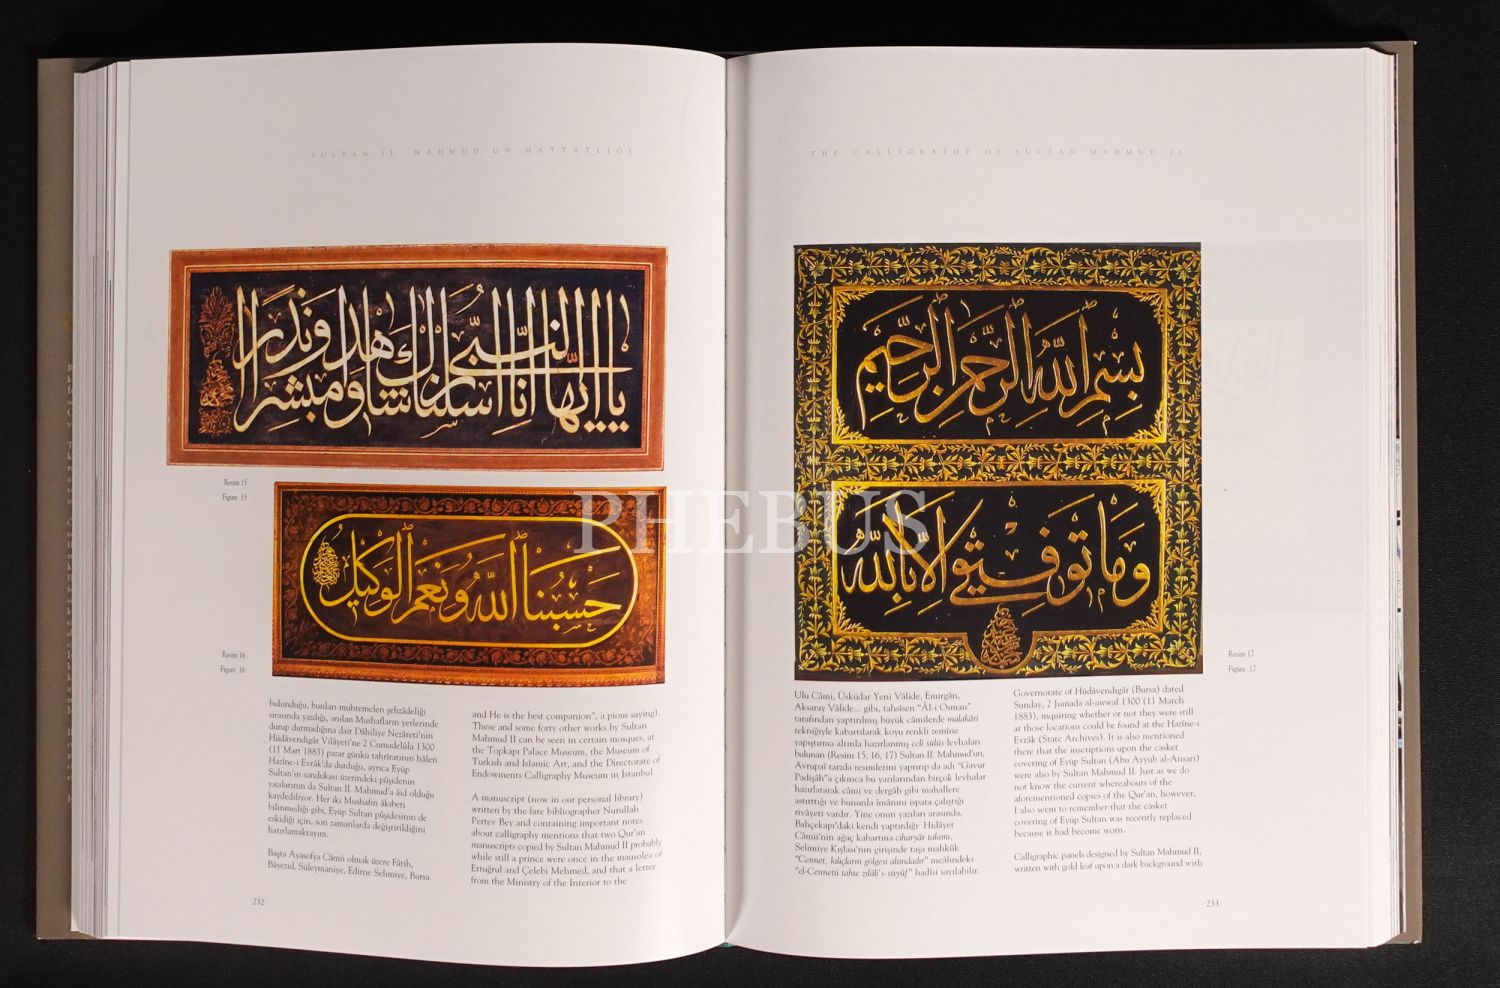 SULTAN II. MAHMUD'UN HATTATLIĞI
يا ايها النبي انا ارسلناك شاهدا ومبشرا ونذيرا
Resim 15
Figure 15
حسبنا الله ونعم الوكيل
Resim 16
Figure 16
bulunduğu, bunları muhtemelen şehzâdeliği
sırasında yazdığı, anılan Mushafların yerlerinde
durup durmadığına dair Dâhiliye Nezâreti'nin
Hüdâvendigâr Vilâyeti'ne 2 Cumadelûla 1300
(11 Mart 1883) pazar günkü tahrîratının hâlen
Hazîne-i Evrâk'da durduğu, ayrıca Eyüp
Sultan'ın sandukası üzerindeki pûşîdenin
yazılarının da Sultan II. Mahmud'a âid olduğu
kaydediliyor. Her iki Mushafın âkıbeti
bilinmediği gibi, Eyüp Sultan pûşîdesinin de
eskidiği için, son zamanlarda değiştirildiğini
hatırlamaktayım.
Başta Ayasofya Câmii olmak üzere Fâtih,
Bâyezid, Süleymaniye, Edirne Selimiye, Bursa
and He is the best companion", a pious saying).
These and some forty other works by Sultan
Mahmud II can be seen in certain mosques, at
the Topkapı Palace Museum, the Museum of
Turkish and Islamic Art, and the Directorate of
Endowments Calligraphy Museum in İstanbul.
A manuscript (now in our personal library)
written by the late bibliographer Nurullah
Pertev Bey and containing important notes
about calligraphy mentions that two Qur'an
manuscripts copied by Sultan Mahmud II probably
while still a prince were once in the mausolea of
Ertuğrul and Çelebi Mehmed, and that a letter
from the Ministry of the Interior to the
·232·
THE CALLIGRAPHY OF SULTAN MAHMUD II
بسم الله الرحمن الرحيم
وما توفيقي الا بالله
Resim 17
Figure 17
Ulu Câmi, Üsküdar Yeni Vâlide, Emirgân,
Aksaray Vâlide... gibi, tahsîsen "Âl-i Osman"
tarafından yaptırılmış büyük câmilerde malakâri
tekniğiyle kabartılarak koyu renkli zemîne
yapıştırma altınla hazırlanmış celî sülüs levhaları
bulunan (Resim 15, 16, 17) Sultan II. Mahmud'un,
Avrupaî tarzda resimlerini yaptırıp da adı "Gavur
Padişâh"a çıkınca bu yazılarından birçok levhalar
hazırlatarak câmi ve dergâh gibi mahallere
astırttığı ve bununla îmânını ispata çalıştığı
rivâyeti vardır. Yine onun yazıları arasında,
Bahçekapı'daki kendi yaptırdığı Hidâyet
Câmii'nin ağaç kabartma ciharyâr takımı,
Selimiye Kışlası'nın girişinde taşa mahkûk
"Cennet, kılıçların gölgesi altındadır" meâlindeki
"el-Cennetü tahte zılâli's-süyûf" hadîsi sayılabilir.
Governorate of Hüdâvendigâr (Bursa) dated
Sunday, 2 Jumada al-awwal 1300 (11 March
1883), inquiring whether or not they were still
at those locations could be found at the Hazîne-i
Evrâk (State Archives). It is also mentioned
there that the inscriptions upon the casket
covering of Eyüp Sultan (Abu Ayyub al-Ansari)
were also by Sultan Mahmud II. Just as we do
not know the current whereabouts of the
aforementioned copies of the Qur'an, however,
I also seem to remember that the casket
covering of Eyüp Sultan was recently replaced
because it had become worn.
Calligraphic panels designed by Sultan Mahmud II,
written with gold leaf upon a dark background with
·233·
PHEBUS